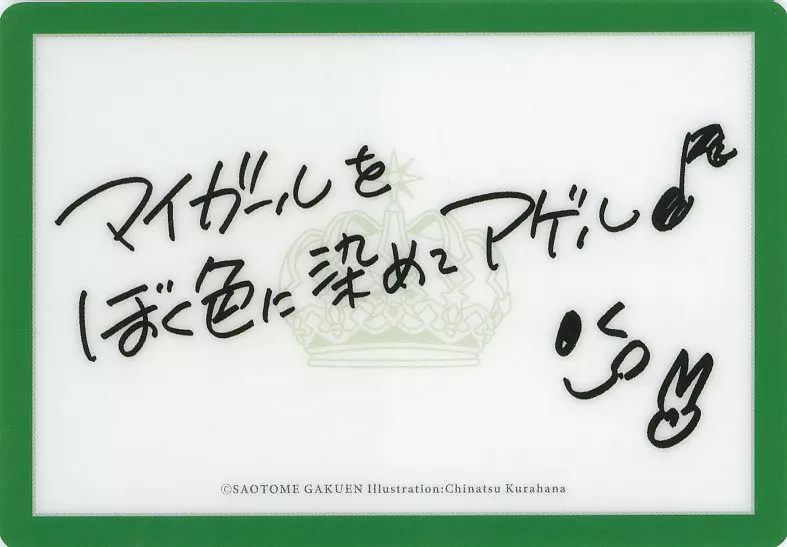 マイガールを
ぼく色に染めてアゲル♪
©SAOTOME GAKUEN Illustration:Chinatsu Kurahana